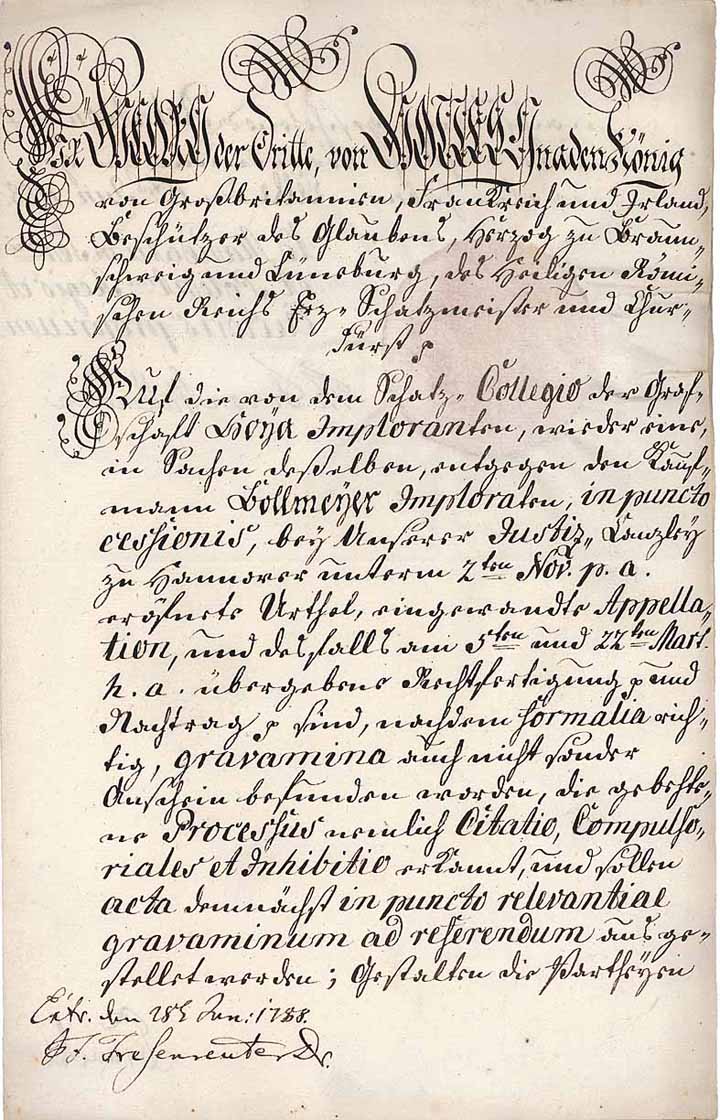 Wir GEORG der Dritte, von GOTTES Gnaden König
von Großbritannien, Frankreich und Irland,
Beschützer des Glaubens, Herzog zu Braun-
schweig und Lüneburg, des Heiligen Römi-
schen Reichs Erz-Schatzmeister und Chur-
Fürst p
Auf die von dem Schatz-Collegio der Graf-
schaft Hoya Imploranten, wieder eine,
in Sachen deßelben, entgegen den Kauf-
mann Bollmeyer Imploraten, in puncto
cessionis, bey Unserer Justiz-Canzley
zu Hannover unterm 2ten Nov. p. a.
eröfnete Urthel, eingewandte Appella-
tion, und desfalls am 5ten und 22ten Mart.
h. a. übergebene Rechtfertigung p und
Nachtrag p sind, nachdem formalia rich-
tig, gravamina auch nicht sonder
Anschein befunden worden, die gebehte-
ne Processus nemlich Citatio, Compulso-
riales et Inhibitio erkannt, und sollen
acta demnächst in puncto relevantiae
gravaminum ad referendum ausge-
stellet werden; Gestalten die Partheyen
den 28t Jun: 1788.